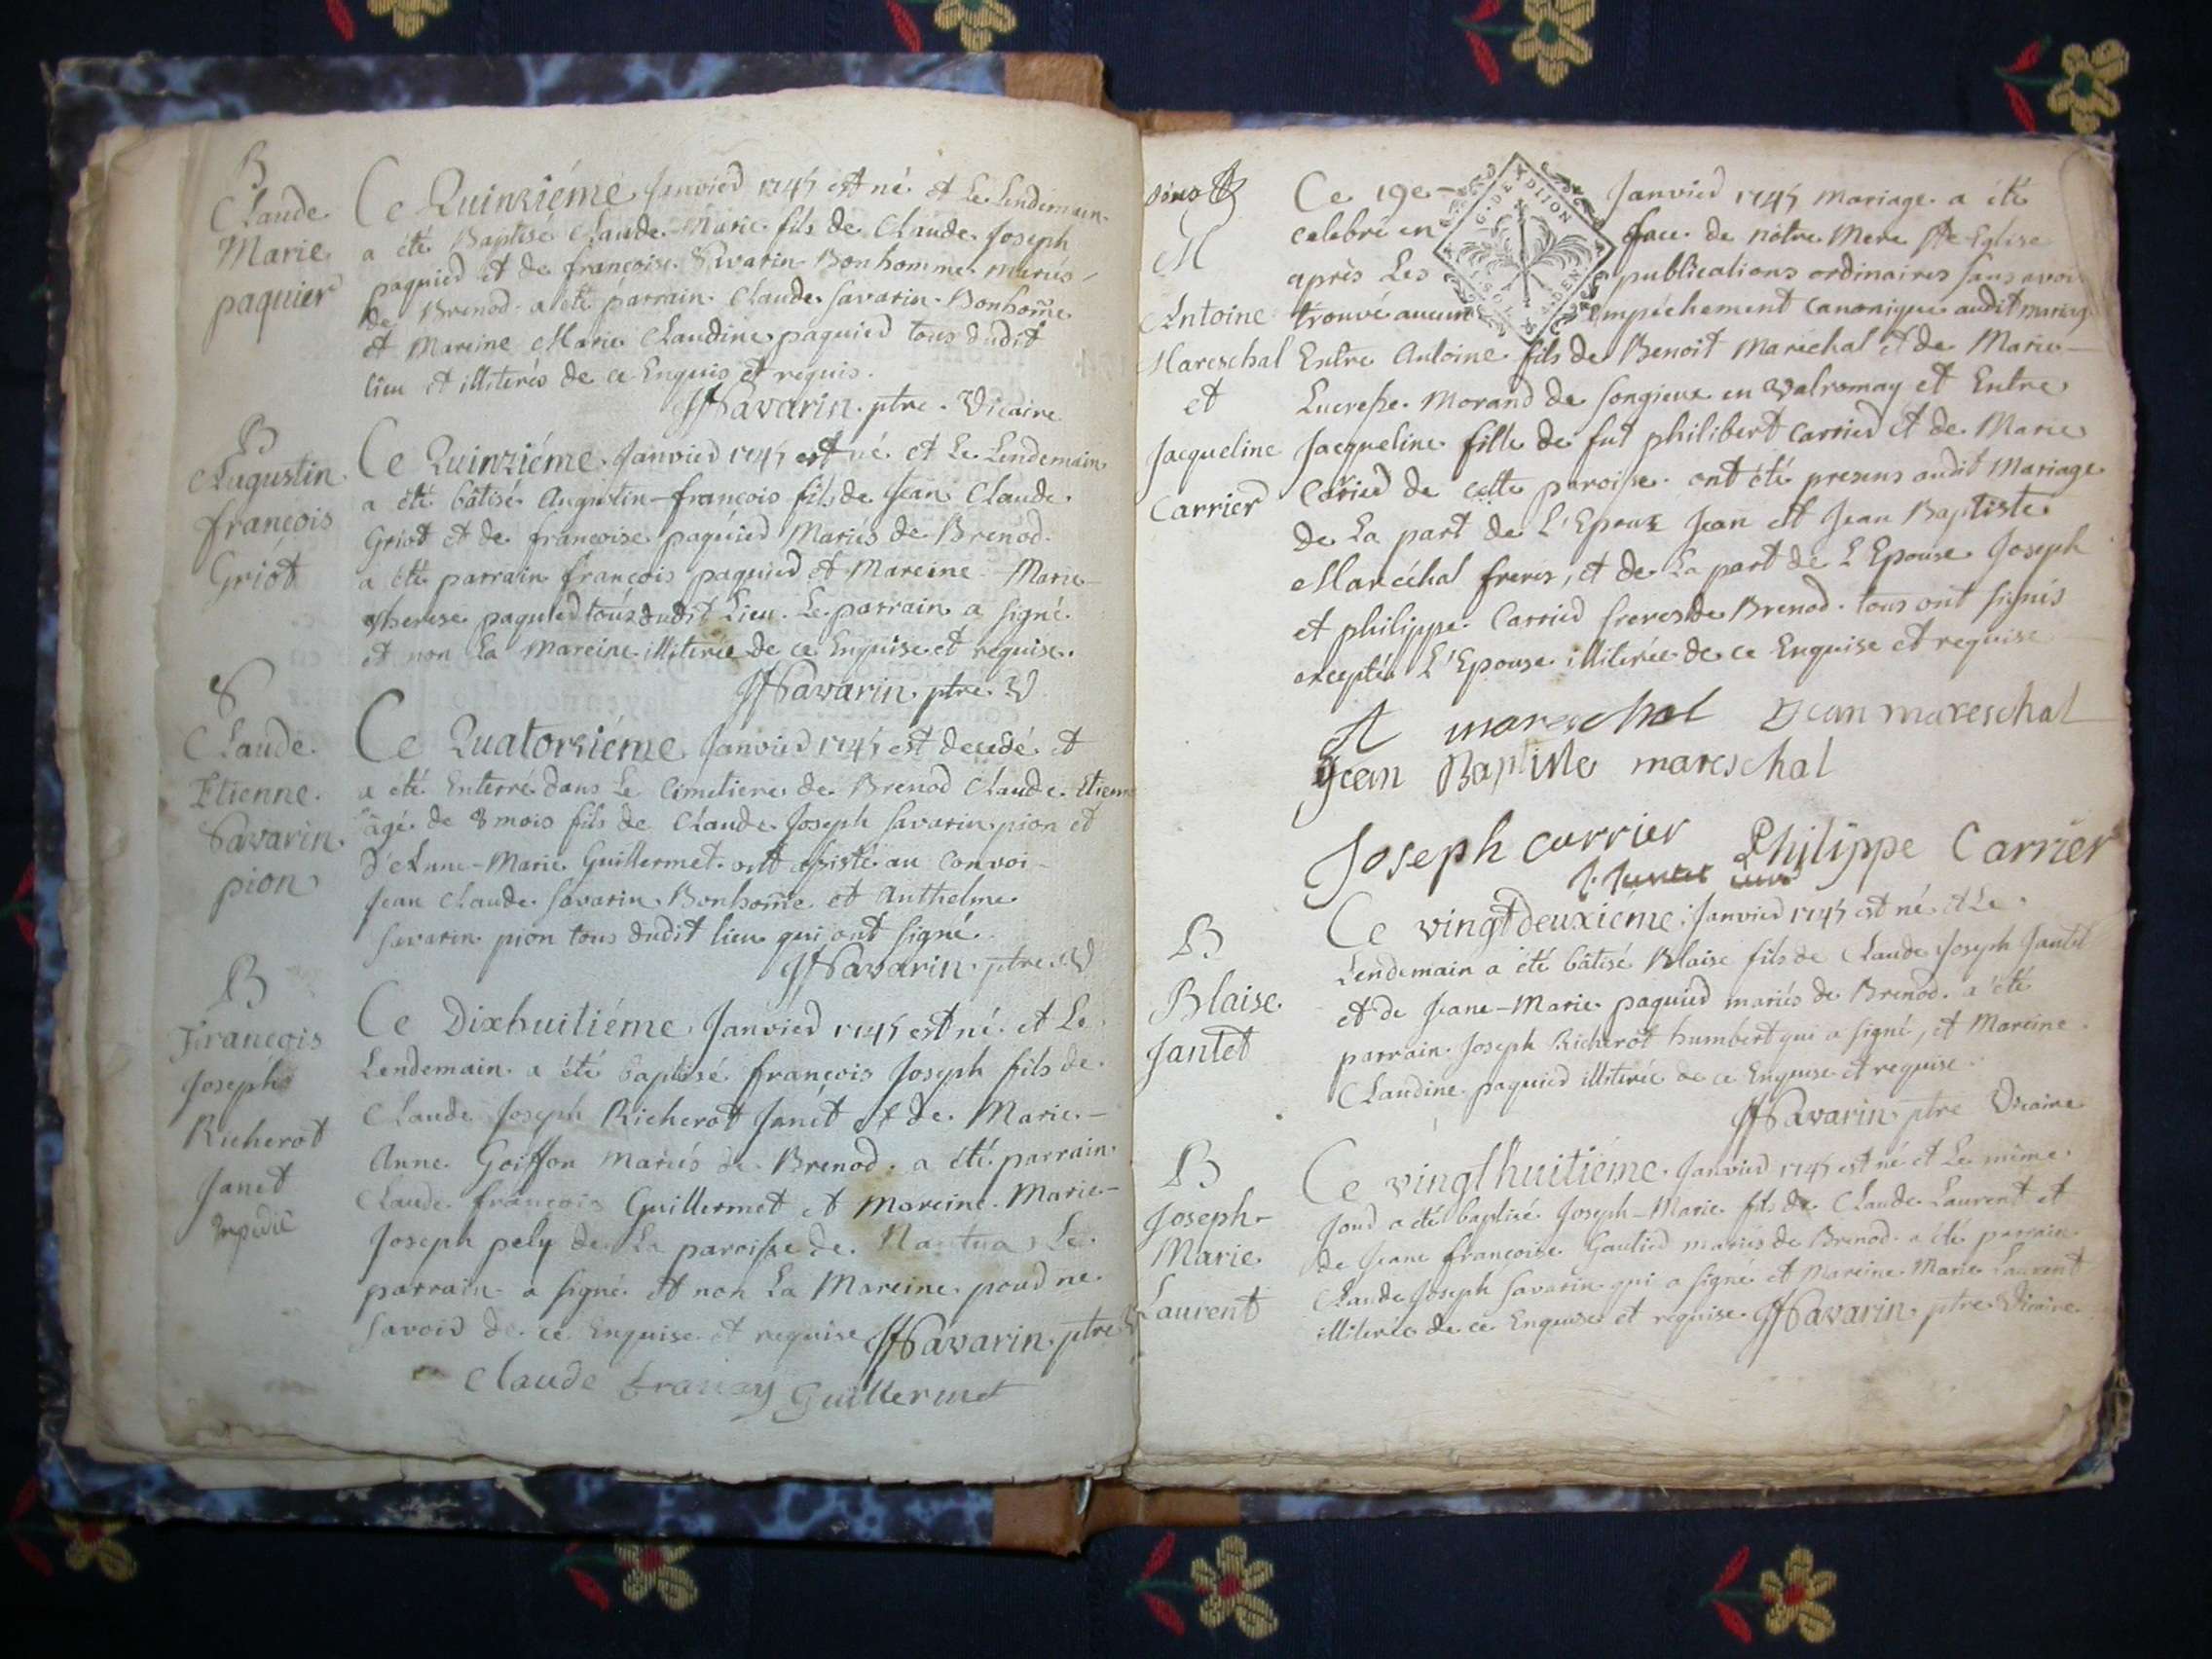 B
Claude
Marie
paquier
Ce Quinziéme Janvier 1745 est né et Le Lendemain
a été Baptisé Claude-Marie fils de Claude Joseph
paquier et de françoise Savarin-Bonhomme mariés
de Brenod. a été parrain Claude Savarin-Bonhom̃e
et Mareine Marie Claudine paquier tous dudit
lieu et illiterés de ce Enquis et requis.
Savarin ptre. Vicaire
B
Augustin
françois
Griót
Ce Quinziéme Janvier 1745 est né et Le Lendemain
a été bâtisé Augustin-françois fils de Jean Claude
Griot et de françoise paquier Mariés de Brenod.
a été parrain françois paquier et Mareine Marie-
therese paquier tous dudit Lieu. Le parrain a signé
et non La Mareine illiterée de ce Enquise et requise.
Savarin ptre. V
S
Claude
Etienne
Savarin
pion
Ce Quatorziéme Janvier 1745 est decedé et
a été Enterré dans Le Cimetiere de Brenod Claude-Etienne
âgé de 8 mois fils de Claude Joseph Savarin pion et
d'Anne-Marie Guillermet. ont assisté au Convoi
Jean Claude Savarin Bonhom̃e et Anthelme
Savarin pion tous dudit lieu qui ont signé
Savarin ptre. V
B
François
Joseph
Richerot
Janet
Ce Dixhuitiéme Janvier 1745 est né et Le
Lendemain a été baptisé françois Joseph fils de
Claude Joseph Richerot Janet et de Marie-
Anne Goiffon mariés de Brenod. a été parrain
Claude françois Guillermet et Mareine Marie-
Joseph pely de La paroisse de Nantua Le
parrain a signé et non La Mareine pour ne
savoir de ce Enquise et requise Savarin ptre V
Claude francoy Guillermet
G. DE DIJON
Ce 19e Janvier 1745 mariage a été
celebré en face de nôtre Mere Ste Eglise
après Les publications ordinaires sans avoir
trouvé aucun empéchement canonique audit mariage
M
Antoine
Mareschal
et
Jacqueline
Carrier
Entre Antoine fils de Benoit Maréchal et de Marie-
Lucresse Morand de Songieux en Valromay et Entre
Jacqueline fille de fut philibert Carrier et de Marie
Carrier de cette paroisse. ont été presens audit Mariage
de La part de L'Epoux Jean et Jean Baptiste
Maréchal freres, et de La part de L'Epouse Joseph
et philippe Carrier freres de Brenod. tous ont signés
exceptée L'Epouse illiterée de ce Enquise et requise
A mareschal Jean mareschal
Jean Baptiste mareschal
Joseph carrier Philippe Carrier
B
Blaise
Jantet
Ce vingtdeuxiéme Janvier 1745 est né et Le
Lendemain a été bâtisé Blaise fils de Claude Joseph Jantet
et de Jeane-Marie paquier mariés de Brenod. a été
parrain Joseph Richerot humbert qui a signé, et Mareine
Claudine paquier illiterée de ce Enquise et requise.
Savarin ptre Vicaire
B
Joseph-
Marie
Laurent
Ce vingthuitiéme Janvier 1745 est né et Le même
Jour a été baptisé Joseph-Marie fils de Claude Laurent et
de Jeane françoise Gautier mariés de Brenod. a été parrain
Claude Joseph Savarin qui a signé et Mareine Marie Laurent
illiterée de ce Enquise et requise. Savarin ptre Vicaire